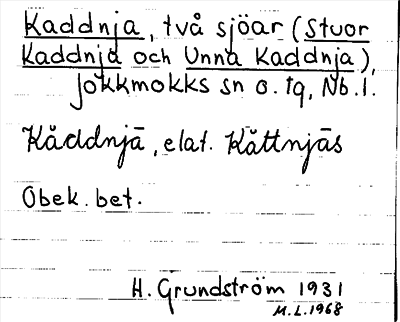 Kaddnja, två sjöar (Stuor
Kaddnja och Unna Kaddnja),
Jokkmokks sn o. tg, Nb. l.
Kåddnjā, elat. Kåttnjās
Obek. bet.
H. Grundström 1931
M.L. 1968